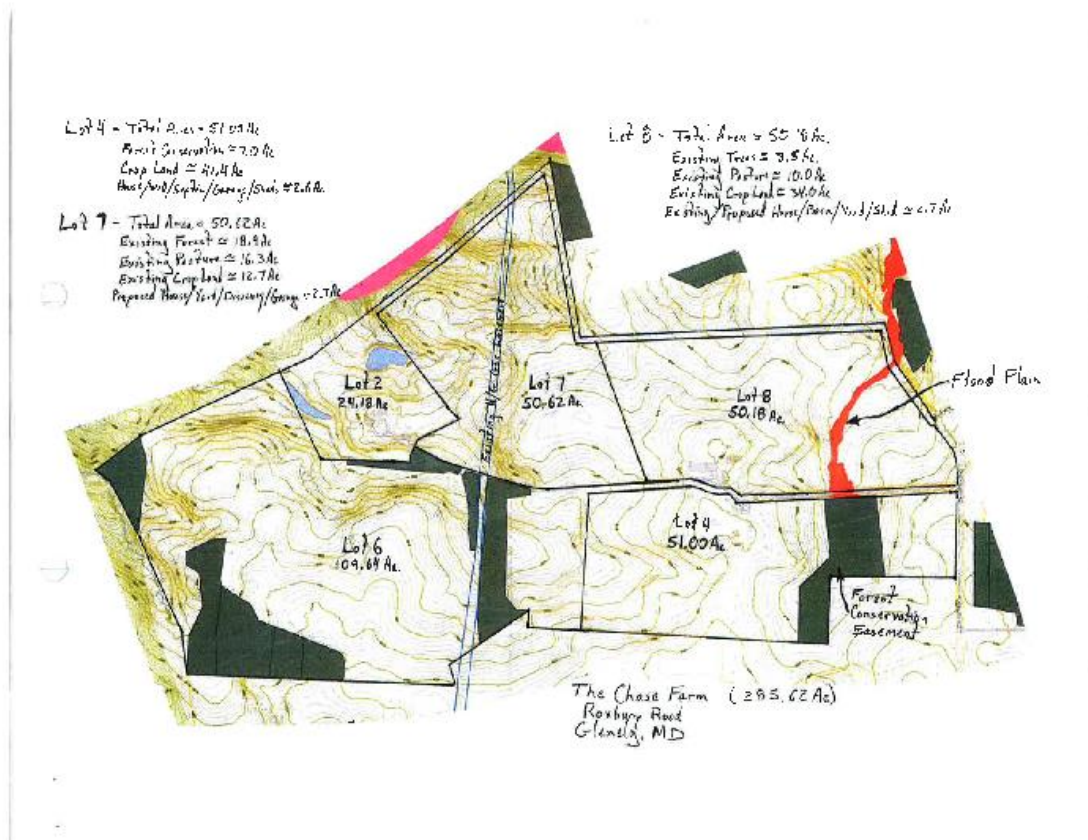 Lot 4 - Total Area = 51.00 Ac
Forest Conservation ≅ 7.0 Ac
Crop Land ≅ 41.4 Ac
House/Yard/Septic/Garage/Sheds ≅ 2.6 Ac
Lot 7 - Total Area = 50.62 Ac
Existing Forest ≅ 18.9 Ac
Existing Pasture ≅ 16.3 Ac
Existing Crop Land ≅ 12.7 Ac
Proposed House/Yard/Driveway/Garage ≅ 2.7 Ac
Lot 8 - Total Area = 50.18 Ac.
Existing Trees ≅ 3.5 Ac.
Existing Pasture ≅ 10.0 Ac
Existing Crop Land ≅ 34.0 Ac
Existing/Proposed House/Barn/Yard/Shed ≅ 2.7 Ac
Lot 2
24.18 Ac
Lot 7
50.62 Ac.
Lot 8
50.18 Ac.
Flood Plain
Existing Easement
Lot 6
109.64 Ac.
Lot 4
51.00 Ac.
Forest
Conservation
Easement
The Chase Farm (285.62 Ac)
Roxbury Road
Glenelg, MD